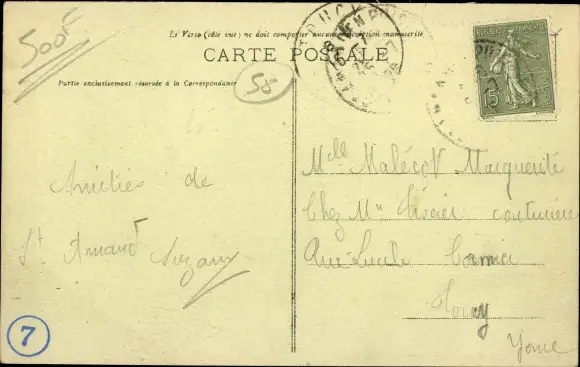 500F
Le Verso (côté vue) ne doit comporter aucune inscription manuscrite
CARTE POSTALE
Partie exclusivement réservée à la Correspondance
58
15
Amitiés de
St Amand
Suzany
Melle Malécot Marguerite
Chez Mr Tisaier couturière
Rue Lucile Cormier
Yonne
7